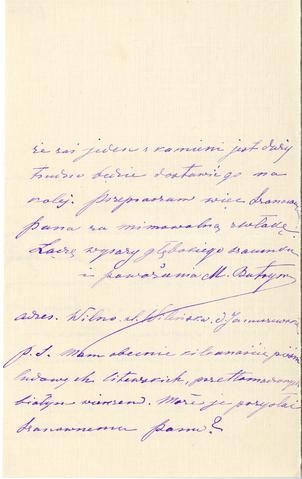 że zaś jeden z kamieni jest duży
trudno będzie dostawić go na
kolej. Przepraszam więc Szanow.
pana za mimowolną zwłokę.
Łączę wyrazy głębokiego szacunku
i poważania M.
adres. Wilno. d.
P.S. Mam obecnie kilkanaście pieśni
ludowych litewskich, przetłomaczonych
białym wierszem. Może je przysłać
szanownemu panu?